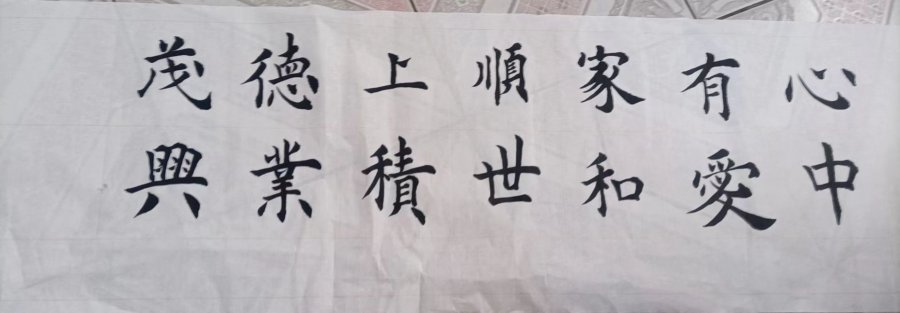 心中
有愛
家和
順世
上積
德業
茂興